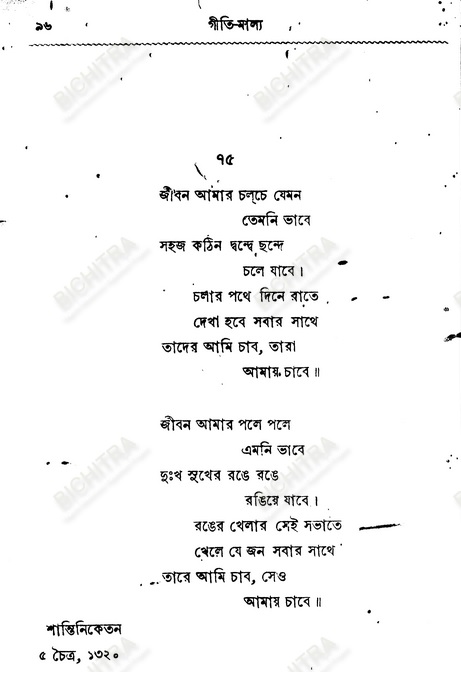 ৯৬ গীতি-মাল্য
৭৫
জীবন আমার চল্‌চে যেমন
তেমনি ভাবে
সহজ কঠিন দ্বন্দ্বে ছন্দে
চলে যাবে।
চলার পথে দিনে রাতে
দেখা হবে সবার সাথে
তাদের আমি চাব, তারা
আমায় চাবে॥
জীবন আমার পলে পলে
এমনি ভাবে
দুঃখ সুখের রঙে রঙে
রঙিয়ে যাবে।
রঙের খেলার সেই সভাতে
খেলে যে জন সবার সাথে
তারে আমি চাব, সেও
আমায় চাবে॥
শান্তিনিকেতন
৫ চৈত্র, ১৩২০
BICHITRA
BICHITRA
BICHITRA
BICHITRA
BICHITRA
BICHITRA
BICHITRA
BICHITRA